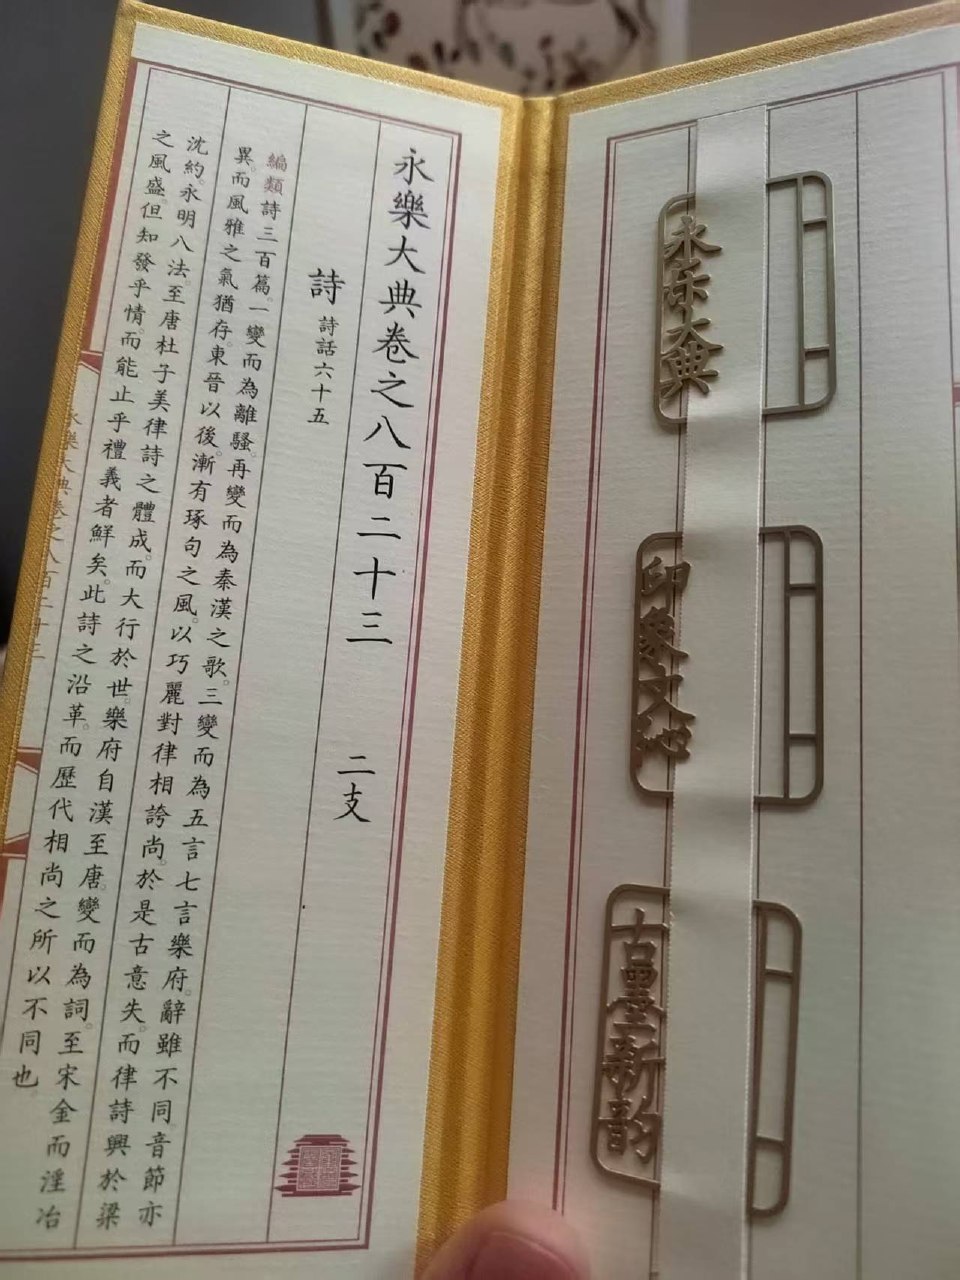 永樂大典卷之八百二十三 二支
詩 詩話六十五
編類詩三百篇。一變而為離騷。再變而為秦漢之歌。三變而為五言七言樂府。辭雖不同音節亦
異。而風雅之氣猶存。東晉以後。漸有琢句之風。以巧麗對律相誇尚。於是古意失。而律詩興於梁
沈約。永明八法。至唐杜子美律詩之體成。而大行於世。樂府自漢至唐。變而為詞。至宋金而淫冶
之風盛。但知發乎情。而能止乎禮義者鮮矣。此詩之沿革。而歷代相尚之所以不同也。
永樂大典卷之八百二十三
永乐大典
印象文
古墨新韵